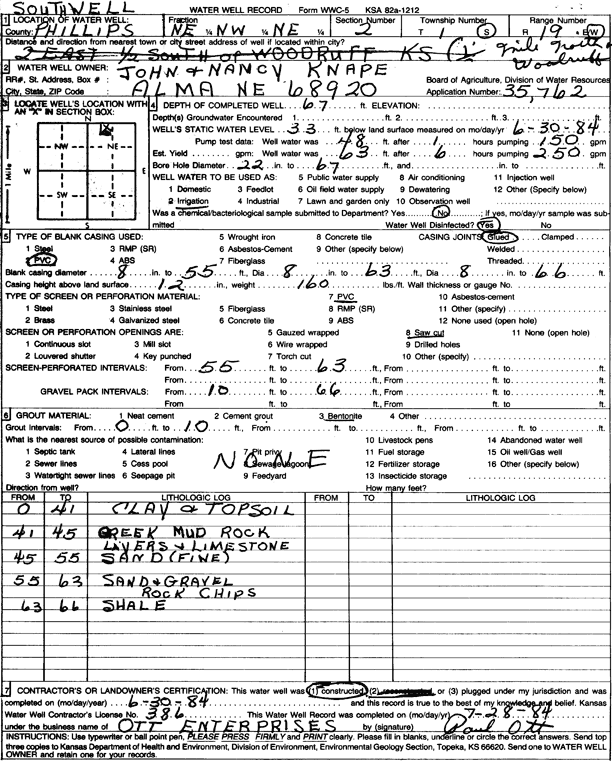 SOUTHWELL WATER WELL RECORD Form WWC-5 KSA 82a-1212
1 LOCATION OF WATER WELL: Fraction Section Number Township Number Range Number
County: PHILLIPS NE ¼ NW ¼ NE ¼ 2 T 1 S R 19 E/W
Distance and direction from nearest town or city street address of well if located within city?
3 EAST ½ South of WOODRUFF KS (½ mile north Woodruff
2 WATER WELL OWNER: JOHN & NANCY KNAPE
RR#, St. Address, Box # : Board of Agriculture, Division of Water Resources
City, State, ZIP Code : ALMA NE 68920 Application Number: 35,762
3 LOCATE WELL'S LOCATION WITH AN "X" IN SECTION BOX:
N
X
NW NE
W E
SW SE
S
1 Mile
4 DEPTH OF COMPLETED WELL 67 ft. ELEVATION:
Depth(s) Groundwater Encountered 1. ft. 2. ft. 3. ft.
WELL'S STATIC WATER LEVEL 33 ft. below land surface measured on mo/day/yr 6-30-84
Pump test data: Well water was 48 ft. after 1 hours pumping 150 gpm
Est. Yield gpm: Well water was 63 ft. after 6 hours pumping 250 gpm
Bore Hole Diameter 22 in. to 67 ft., and in. to ft.
WELL WATER TO BE USED AS: 5 Public water supply 8 Air conditioning 11 Injection well
1 Domestic 3 Feedlot 6 Oil field water supply 9 Dewatering 12 Other (Specify below)
2 Irrigation 4 Industrial 7 Lawn and garden only 10 Observation well
Was a chemical/bacteriological sample submitted to Department? Yes No ; if yes, mo/day/yr sample was submitted
Water Well Disinfected? Yes No
5 TYPE OF BLANK CASING USED: 5 Wrought iron 8 Concrete tile CASING JOINTS: Glued Clamped
1 Steel 3 RMP (SR) 6 Asbestos-Cement 9 Other (specify below) Welded
2 PVC 4 ABS 7 Fiberglass Threaded
Blank casing diameter 8 in. to 55 ft., Dia 8 in. to 63 ft., Dia 8 in. to 66 ft.
Casing height above land surface 12 in., weight 160 lbs./ft. Wall thickness or gauge No.
TYPE OF SCREEN OR PERFORATION MATERIAL: 7 PVC 10 Asbestos-cement
1 Steel 3 Stainless steel 5 Fiberglass 8 RMP (SR) 11 Other (specify)
2 Brass 4 Galvanized steel 6 Concrete tile 9 ABS 12 None used (open hole)
SCREEN OR PERFORATION OPENINGS ARE: 5 Gauzed wrapped 8 Saw cut 11 None (open hole)
1 Continuous slot 3 Mill slot 6 Wire wrapped 9 Drilled holes
2 Louvered shutter 4 Key punched 7 Torch cut 10 Other (specify)
SCREEN-PERFORATED INTERVALS: From 55 ft. to 63 ft., From ft. to ft.
From ft. to ft., From ft. to ft.
GRAVEL PACK INTERVALS: From 10 ft. to 66 ft., From ft. to ft.
From ft. to ft., From ft. to ft.
6 GROUT MATERIAL: 1 Neat cement 2 Cement grout 3 Bentonite 4 Other
Grout Intervals: From 0 ft. to 10 ft., From ft. to ft., From ft. to ft.
What is the nearest source of possible contamination: 10 Livestock pens 14 Abandoned water well
1 Septic tank 4 Lateral lines 7 Pit privy 11 Fuel storage 15 Oil well/Gas well
2 Sewer lines 5 Cess pool 8 Sewage lagoon 12 Fertilizer storage 16 Other (specify below)
3 Watertight sewer lines 6 Seepage pit 9 Feedyard 13 Insecticide storage
NONE
Direction from well? How many feet?
FROM TO LITHOLOGIC LOG FROM TO LITHOLOGIC LOG
0 41 CLAY & TOPSOIL
41 45 CREEK MUD ROCK
LAYERS & LIMESTONE
45 55 SAND (FINE)
55 63 SAND & GRAVEL
ROCK CHIPS
63 66 SHALE
7 CONTRACTOR'S OR LANDOWNER'S CERTIFICATION: This water well was (1) constructed, (2) reconstructed, or (3) plugged under my jurisdiction and was
completed on (mo/day/year) 6-30-84 and this record is true to the best of my knowledge and belief. Kansas
Water Well Contractor's License No. 386 This Water Well Record was completed on (mo/day/yr) 7-28-84
under the business name of OTT ENTERPRISES by (signature) Paul Ott
INSTRUCTIONS: Use typewriter or ball point pen, PLEASE PRESS FIRMLY and PRINT clearly. Please fill in blanks, underline or circle the correct answers. Send top
three copies to Kansas Department of Health and Environment, Division of Environment, Environmental Geology Section, Topeka, KS 66620. Send one to WATER WELL
OWNER and retain one for your records.